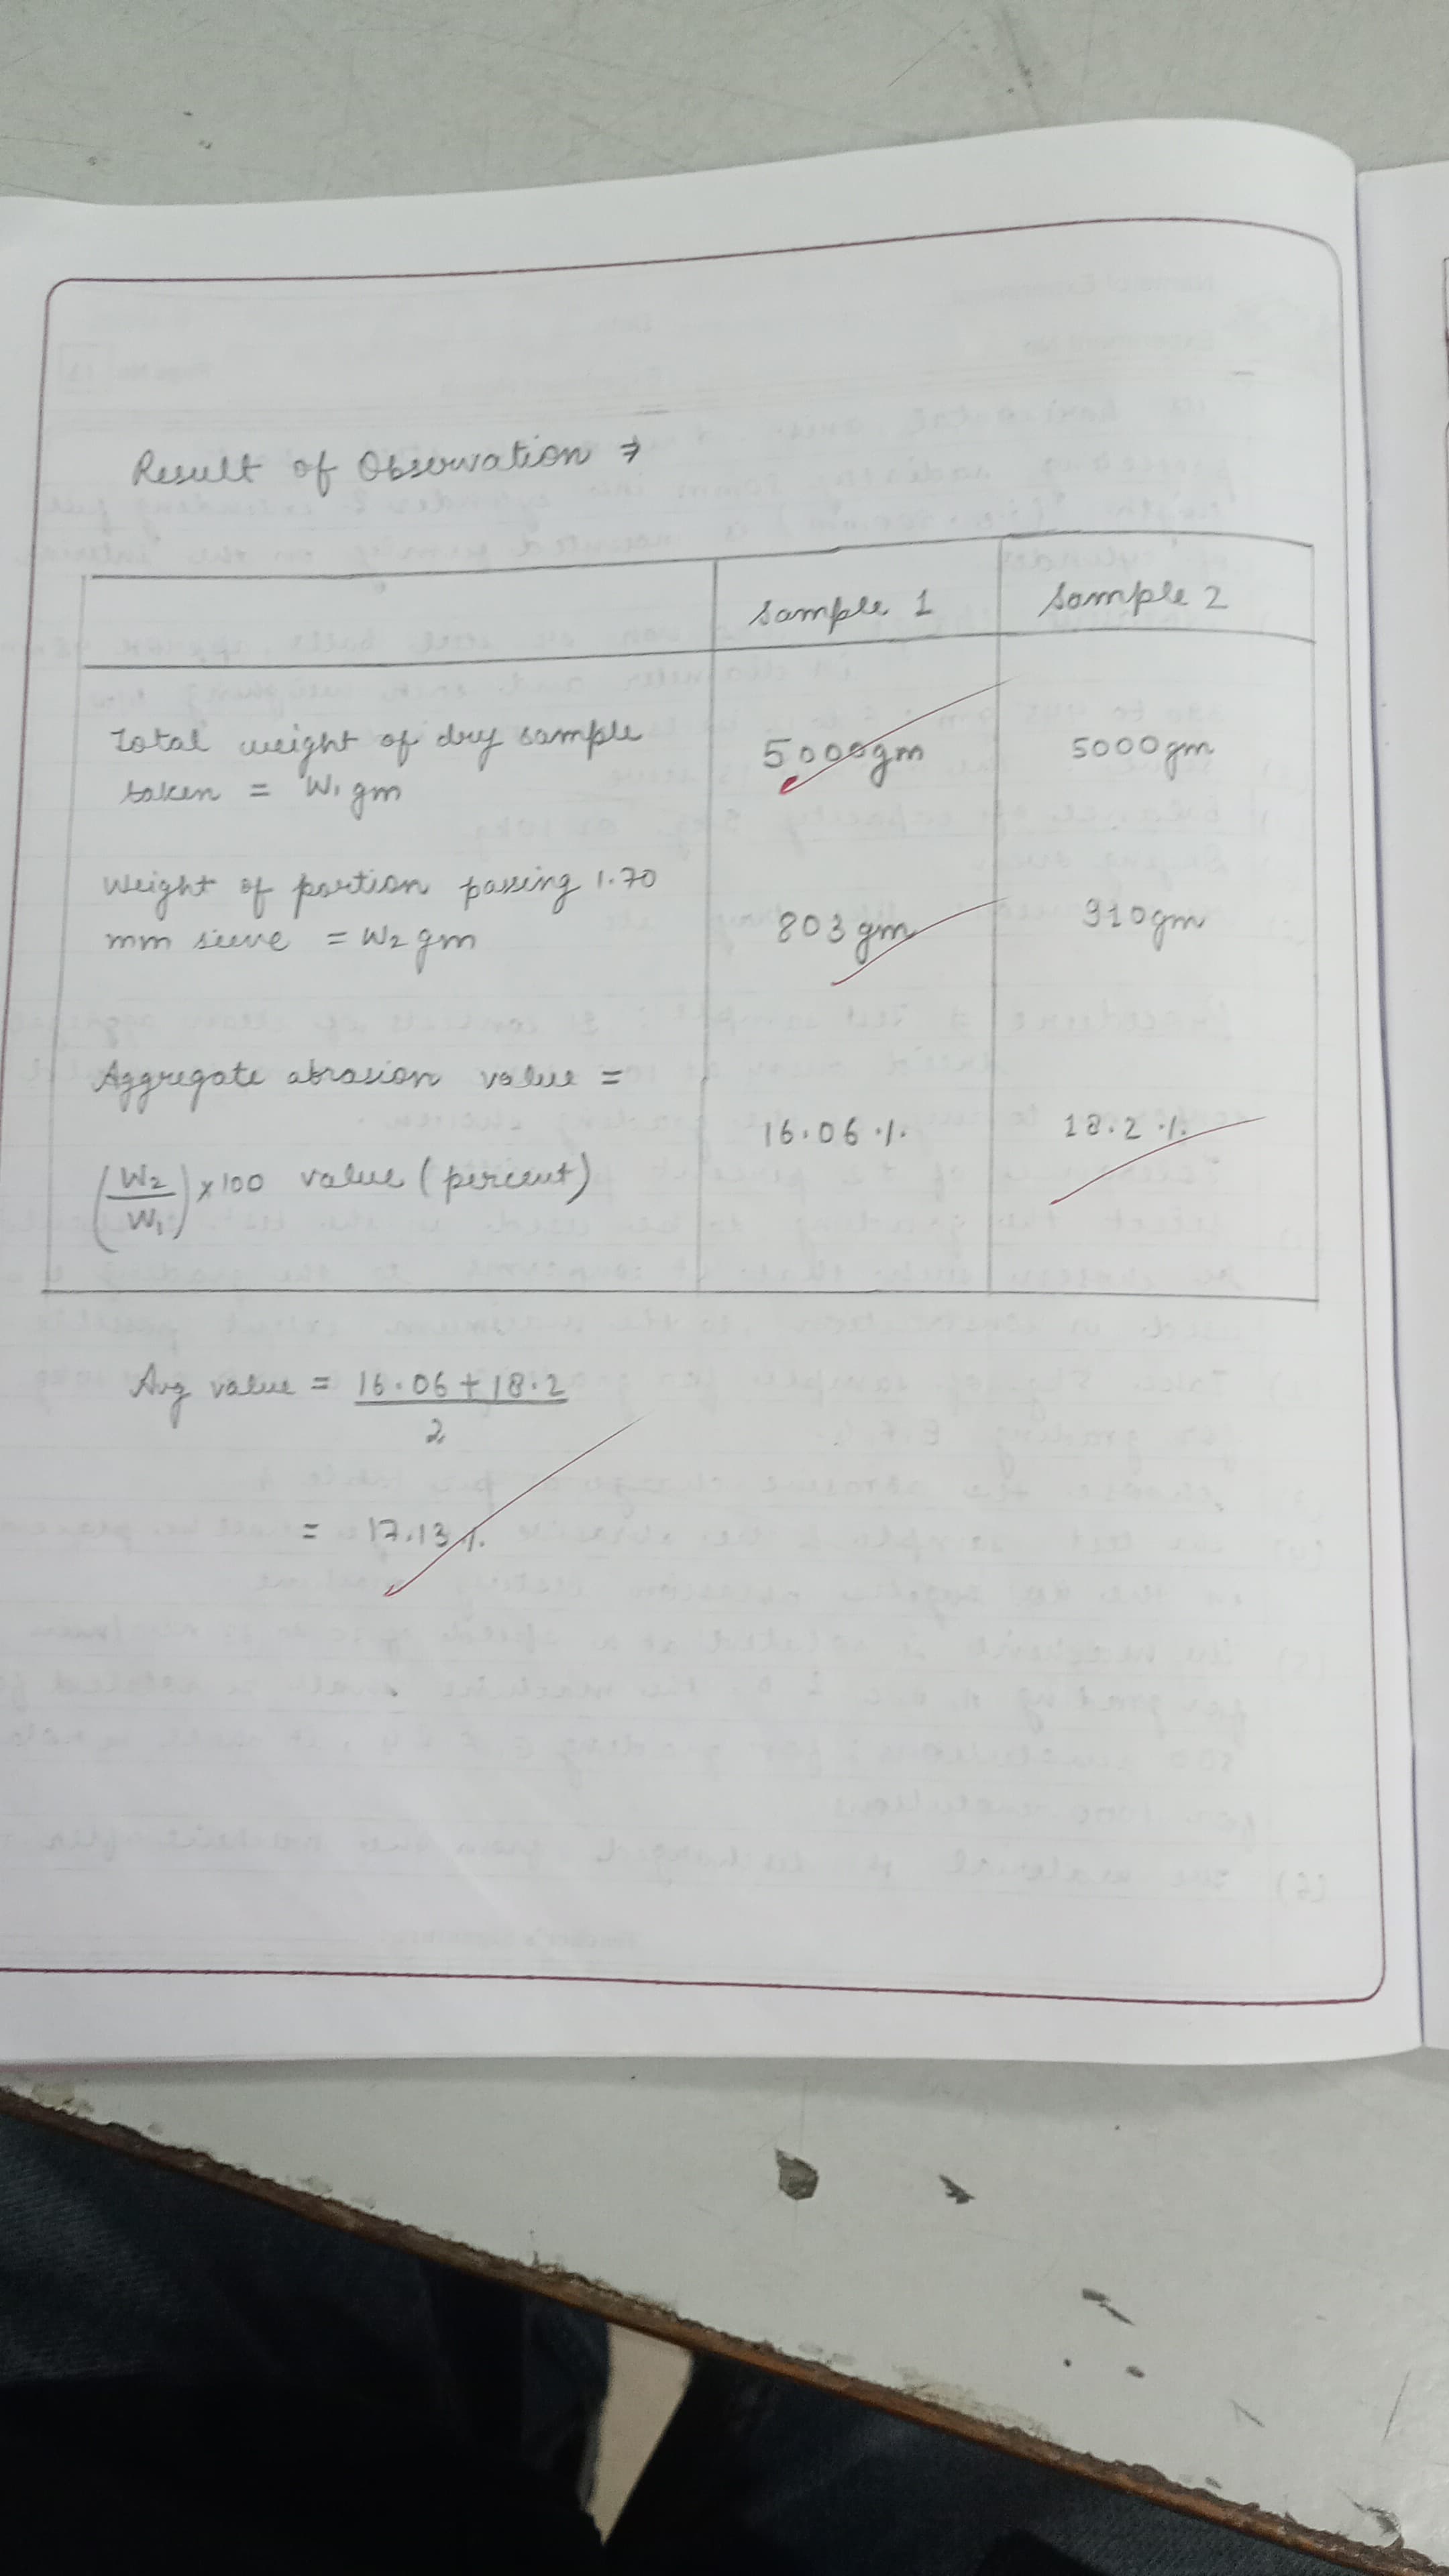 Result of Observation ⇒
Sample 1
Sample 2
Total weight of dry sample
taken = W₁ gm
5000gm
5000gm
Weight of portion passing 1.70
mm sieve = W₂ gm
803 gm
910gm
Aggregate abrasion value =
(W₂/W₁) × 100 value (percent)
16.06 %
18.2 %
Avg value = 16.06 + 18.2
2
= 17.13 %